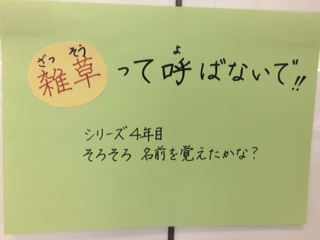 ざっそう
雑草って呼ばないで!!
よ
シリーズ4年目
そろそろ 名前を覚えたかな?